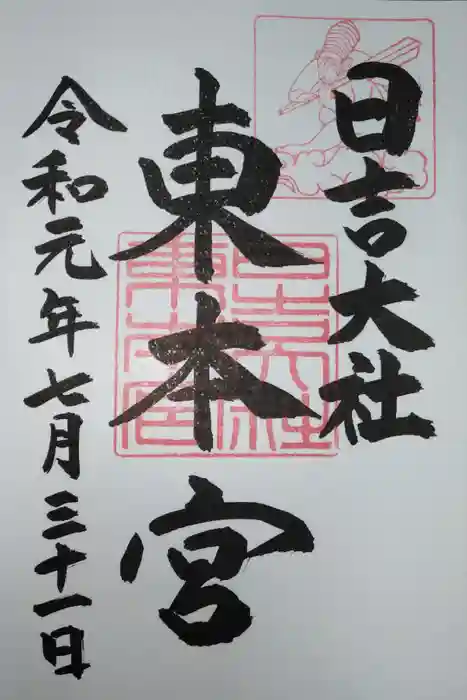 日吉大社
東本宮
令和元年七月三十一日
日吉大社
東本宮